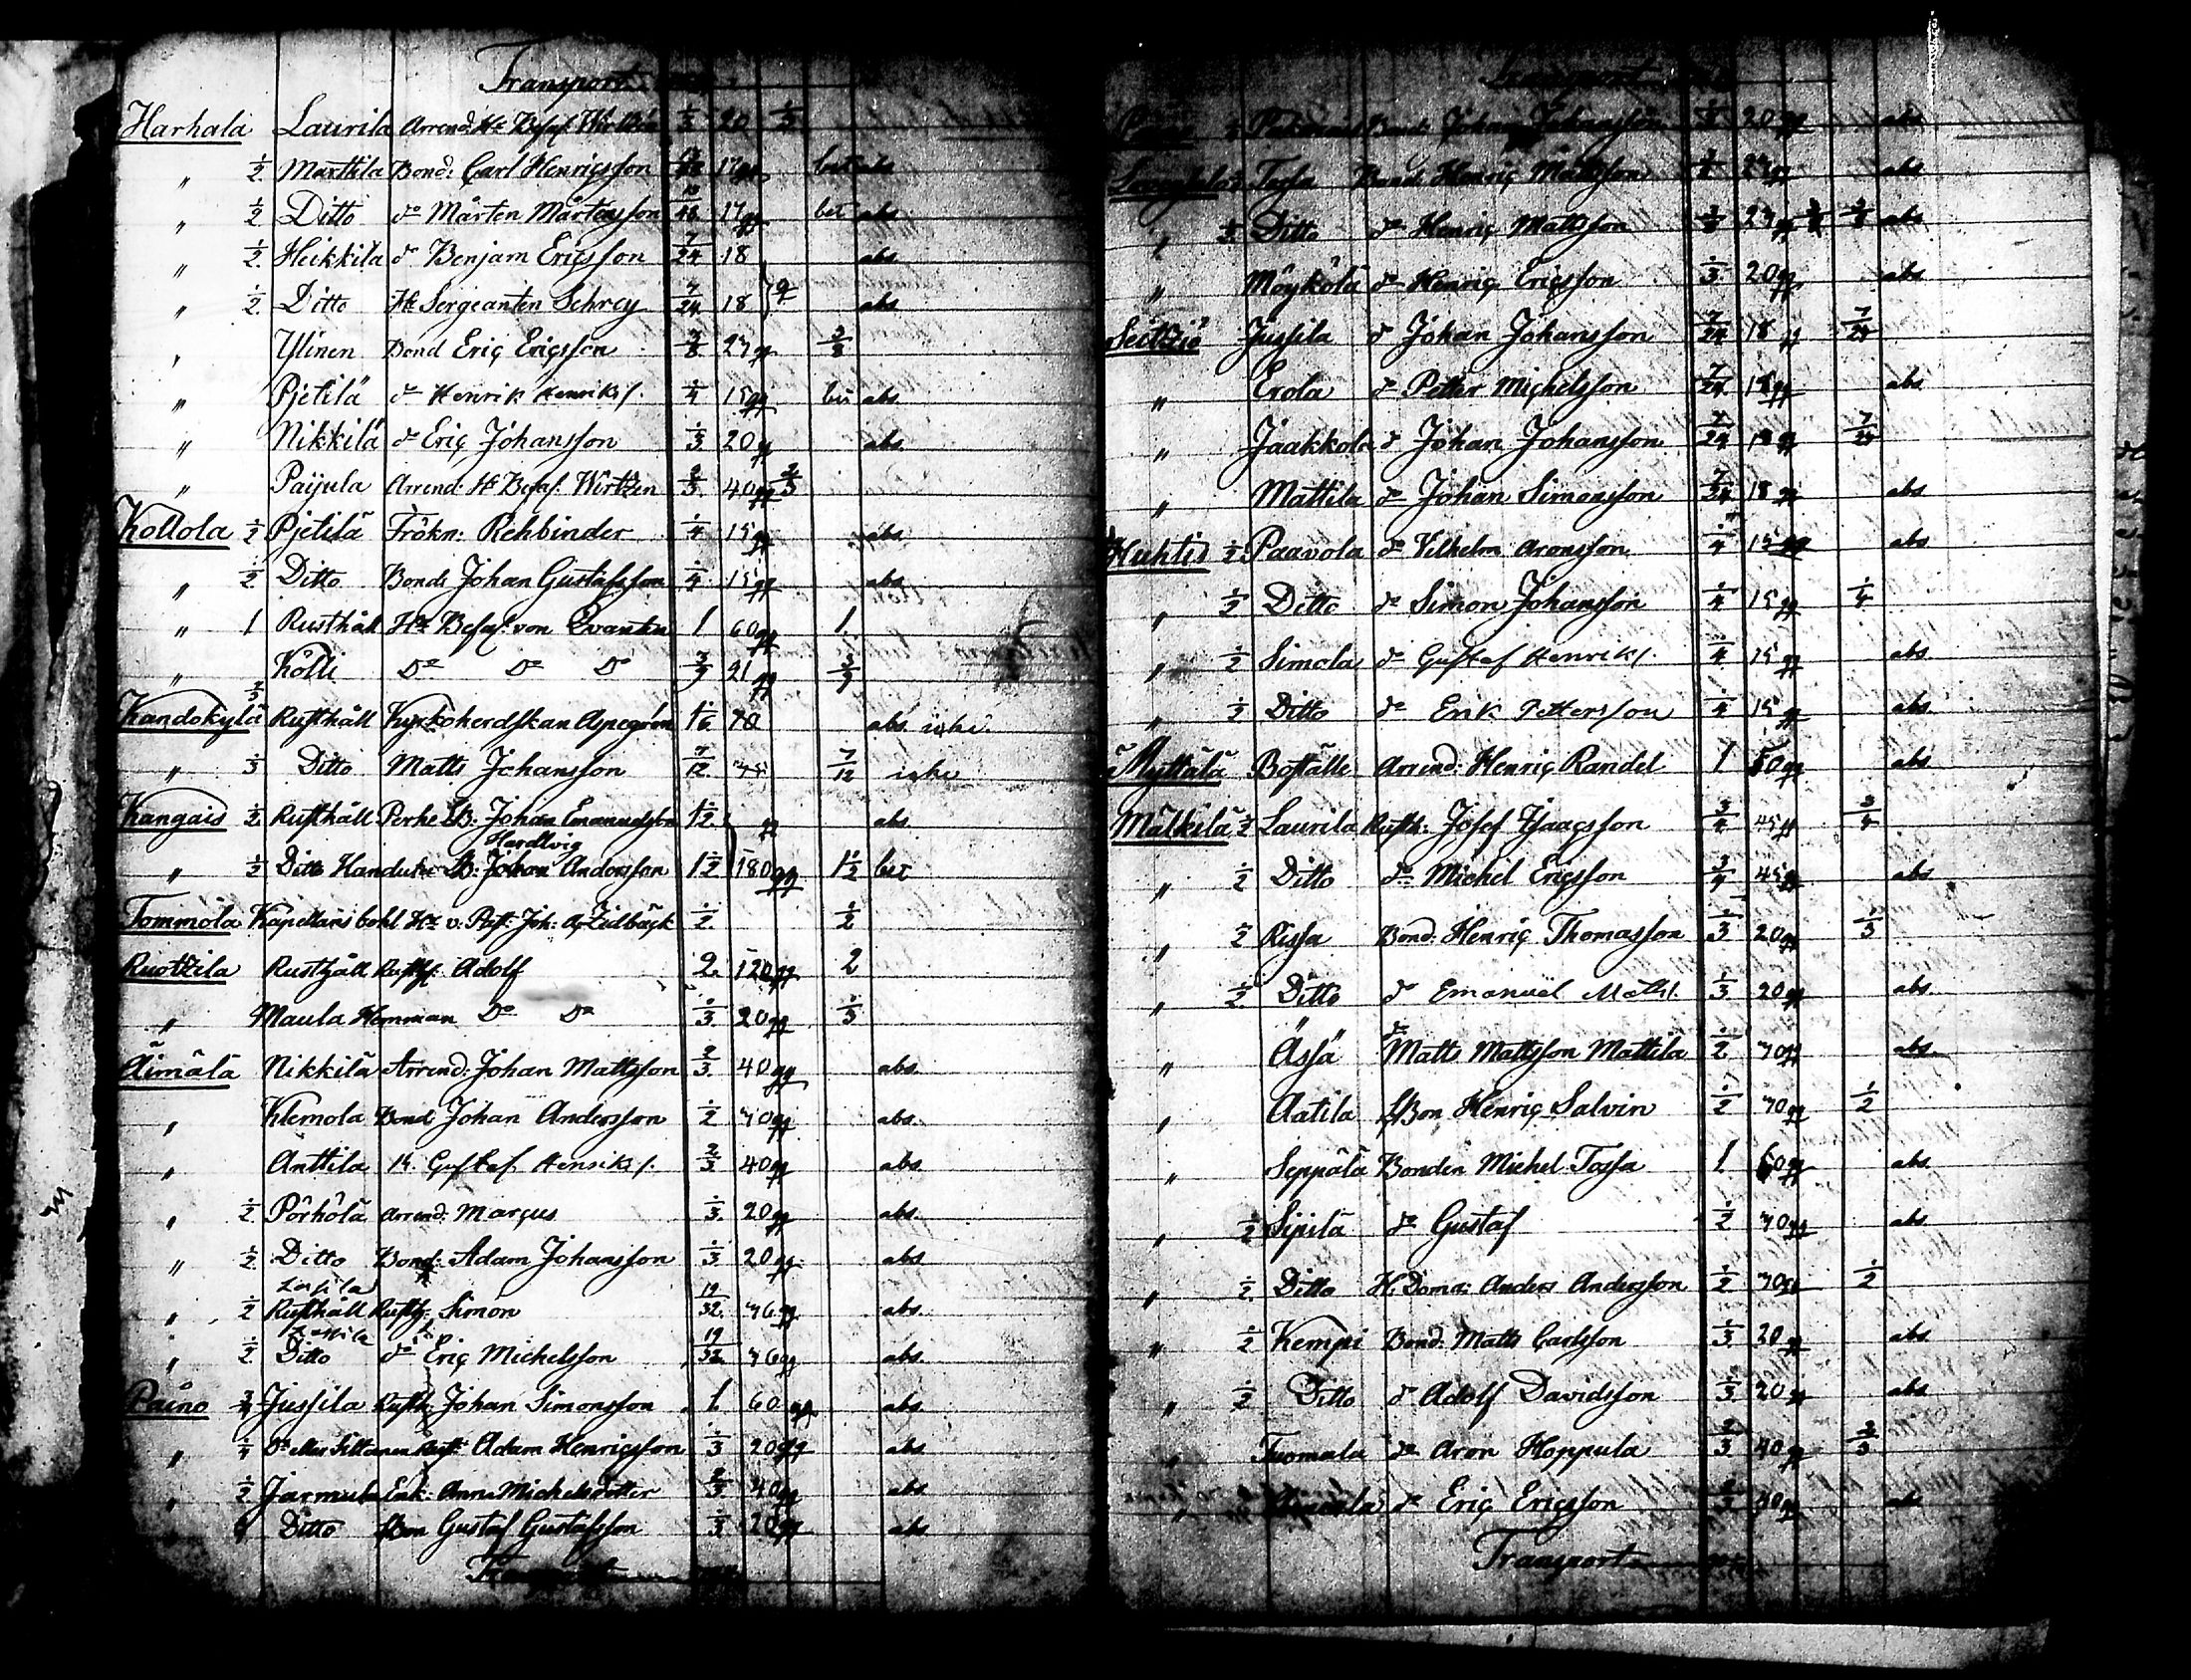 Transport
Harhala Laurila Arrend: Hr Befal. Wirtzén 1/3 20 1/3
" 1/2 Marttila Bond: Carl Henricsson 17 bet abs
" 1/2 Ditto do Mårten Mårtensson 48 17 bet abs.
" 1/2 Heikkilä do Benjam Ericsson 7/24 18 abs.
" 1/2 Ditto Hr Sergeanten Schrey 7/24 18 abs.
" Ylinen Bond Eric Ericsson 3/8 23 3/8
" Pjetilä do Henrik Henriks/. 1/4 15 bet abs
" Nikkilä do Eric Johansson 1/3 20 abs.
" Paijula Arrend: Hr Befal. Wirtzén 2/3 40 2/3
Kollola 1/2 Pjetilä Frökn: Rehbinder 1/4 15 abs.
" 1/2 Ditto Bond: Johan Gustafsson 1/4 15 abs.
" 1 Rusthåll Hr Befal: von Qvanten 1 60 1
" Kölli Do Do Do 21
Kandokylä 2/3 Rusthåll Kyrkoherdskan Aspegrén 1 1/6 70 abs. icke.
" 1/3 Ditto Matts Johansson 7/12 7/12 icke
Kangais 1/2 Rusthåll Perhe B: Johan Emanuelsson 1 1/2 abs
Hardlvig
" 1/2 Ditto Handuke B: Johan Andersson 1 1/2 180 1 1/2 bet
Tommola Kapellans bohl Hr v: Past: Joh: Ag Zidbäck 1/2 1/2
Ruotzila Rusthåll Rusth. Adolf 2. 120 2
" Maula Hemman Do Do 1/3 20 1/3
Äimälä Nikkilä Arrend: Johan Mattsson 2/3 40 abs.
" Klemola Bond: Johan Andersson 1/2 30 abs.
" Anttila Gustaf Henriks/. 2/3 40 abs.
" 1/2 Pörhölä Arrend: Marcus 1/3 20 abs.
" 1/2 Ditto Bond: Adam Johansson 1/3 20 abs
" 1/2 Rusthåll Rusth: Simon 19/32 36 abs.
" 1/2 Ditto do Eric Michelsson 19/32 36 abs.
Paino 3/4 Jussila Rusth: Johan Simonsson 1 60 abs
" 1/4 Do eller Sittanen Rusth: Adam Henricsson 1/3 20 abs
" 1/2 Jarmula Enk: Anna Michelsdotter 2/3 40 abs
Ditto Bon Gustaf Gustafsson 1/3 20 abs
Transport
Transport
Bond: Johan Johansson 1/3 20 abs
Tassa Bond: Henric Mattsson 23 abs
" 1/2 Ditto do Henric Mattsson 3/8 23 3/8 abs
" Möykölä do Henric Ericsson 1/3 20 abs
Seitziö Jussila do Johan Johansson 7/24 18 7/24
" Erola do Petter Michelsson 7/24 18 abs
" Jaakkola do Johan Johansson 7/24 18 7/24
" Mattila do Johan Simonsson 7/24 18 abs
Huhtis 1/2 Paavola do Vilhelm Aronsson 1/4 15 abs
" 1/2 Ditto do Simon Johansson 1/4 15 1/4
" 1/2 Simola do Gustaf Henriks/. 1/4 15 abs
" 1/2 Ditto do Erik Pettersson 1/4 15 abs.
Myttälä Boställe Arrend: Henric Randel 1 60 abs
Mälkilä 1/2 Laurila Rusth: Josef Isaacsson 3/4 45 3/4
" 1/2 Ditto do Michel Ericsson 3/4 45 abs
" 1/2 Rissa Bond: Henric Thomasson 1/3 20 1/3
" 1/2 Ditto do Emanuel Matts/. 1/3 20 abs.
" Ässä do Matts Mattsson Mattila 1/2 30 abs.
" Aatila Bon Henric Salvin 1/2 30 1/2
" Seppälä Bonden Michel Tassa 1 60 abs
" 1/2 Sipilä do Gustaf 1/2 30 abs
" 1/2 Ditto H: Doma: Anders Andersson 1/2 30 1/2
" 1/2 Kempi Bond: Matts Carlsson 1/3 20 abs
" 1/2 Ditto do Adolf Davidsson 1/3 20 abs
" Tuomala do Aron Hoppula 2/3 40 2/3
do Eric Ericsson 2/3 40 abs
Transport